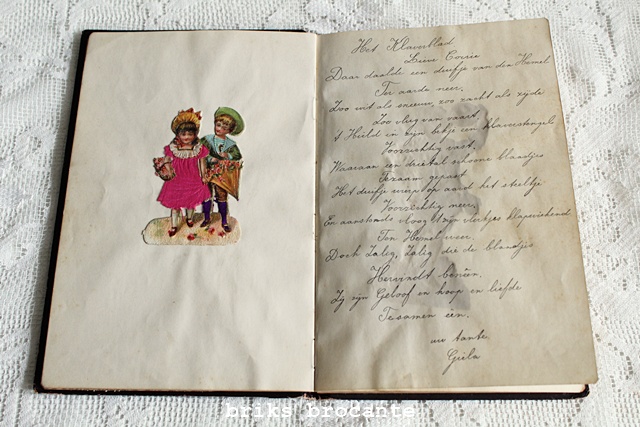 Het Klaverblad
Lieve Corrie
Daar daalde een duifje van den Hemel
Ter aarde neer,
Zoo wit als sneeuw, zoo zacht als zijde
Zoo vlug van vaart,
't Hield in zijn bekje een klaverstengel
Voorzichtig vast,
Waaraan een drietal schoone blaadjes
Tezaam gepast
Het duifje wierp op aard het steeltje
Voorzichtig neer,
En aanstonds vloog 't zijn vlerkjes klapwiekend
Ten Hemel weer.
Doch Zalig, Zalig die de blaadjes
Hervindt bijeen,
Zij zijn Geloof en hoop en liefde
Te samen één.
uw tante
Giela
briks brocante